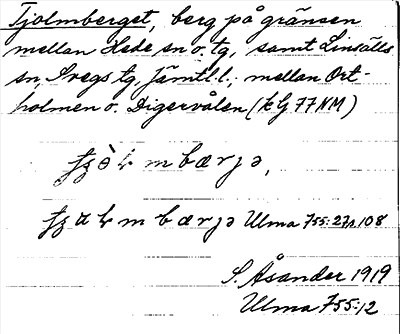 Tjolmberget, berg på gränsen
mellan Hede sn o. tg, samt Linsälls
sn, Svegs tg, Jämtl. l.; mellan Ort-
holmen o. Digervålen (k G 77 NM)
m b æ r j ə,
m b æ r j ə Ulma 755:27 s. 108
S. Åsander 1919
Ulma 755:12